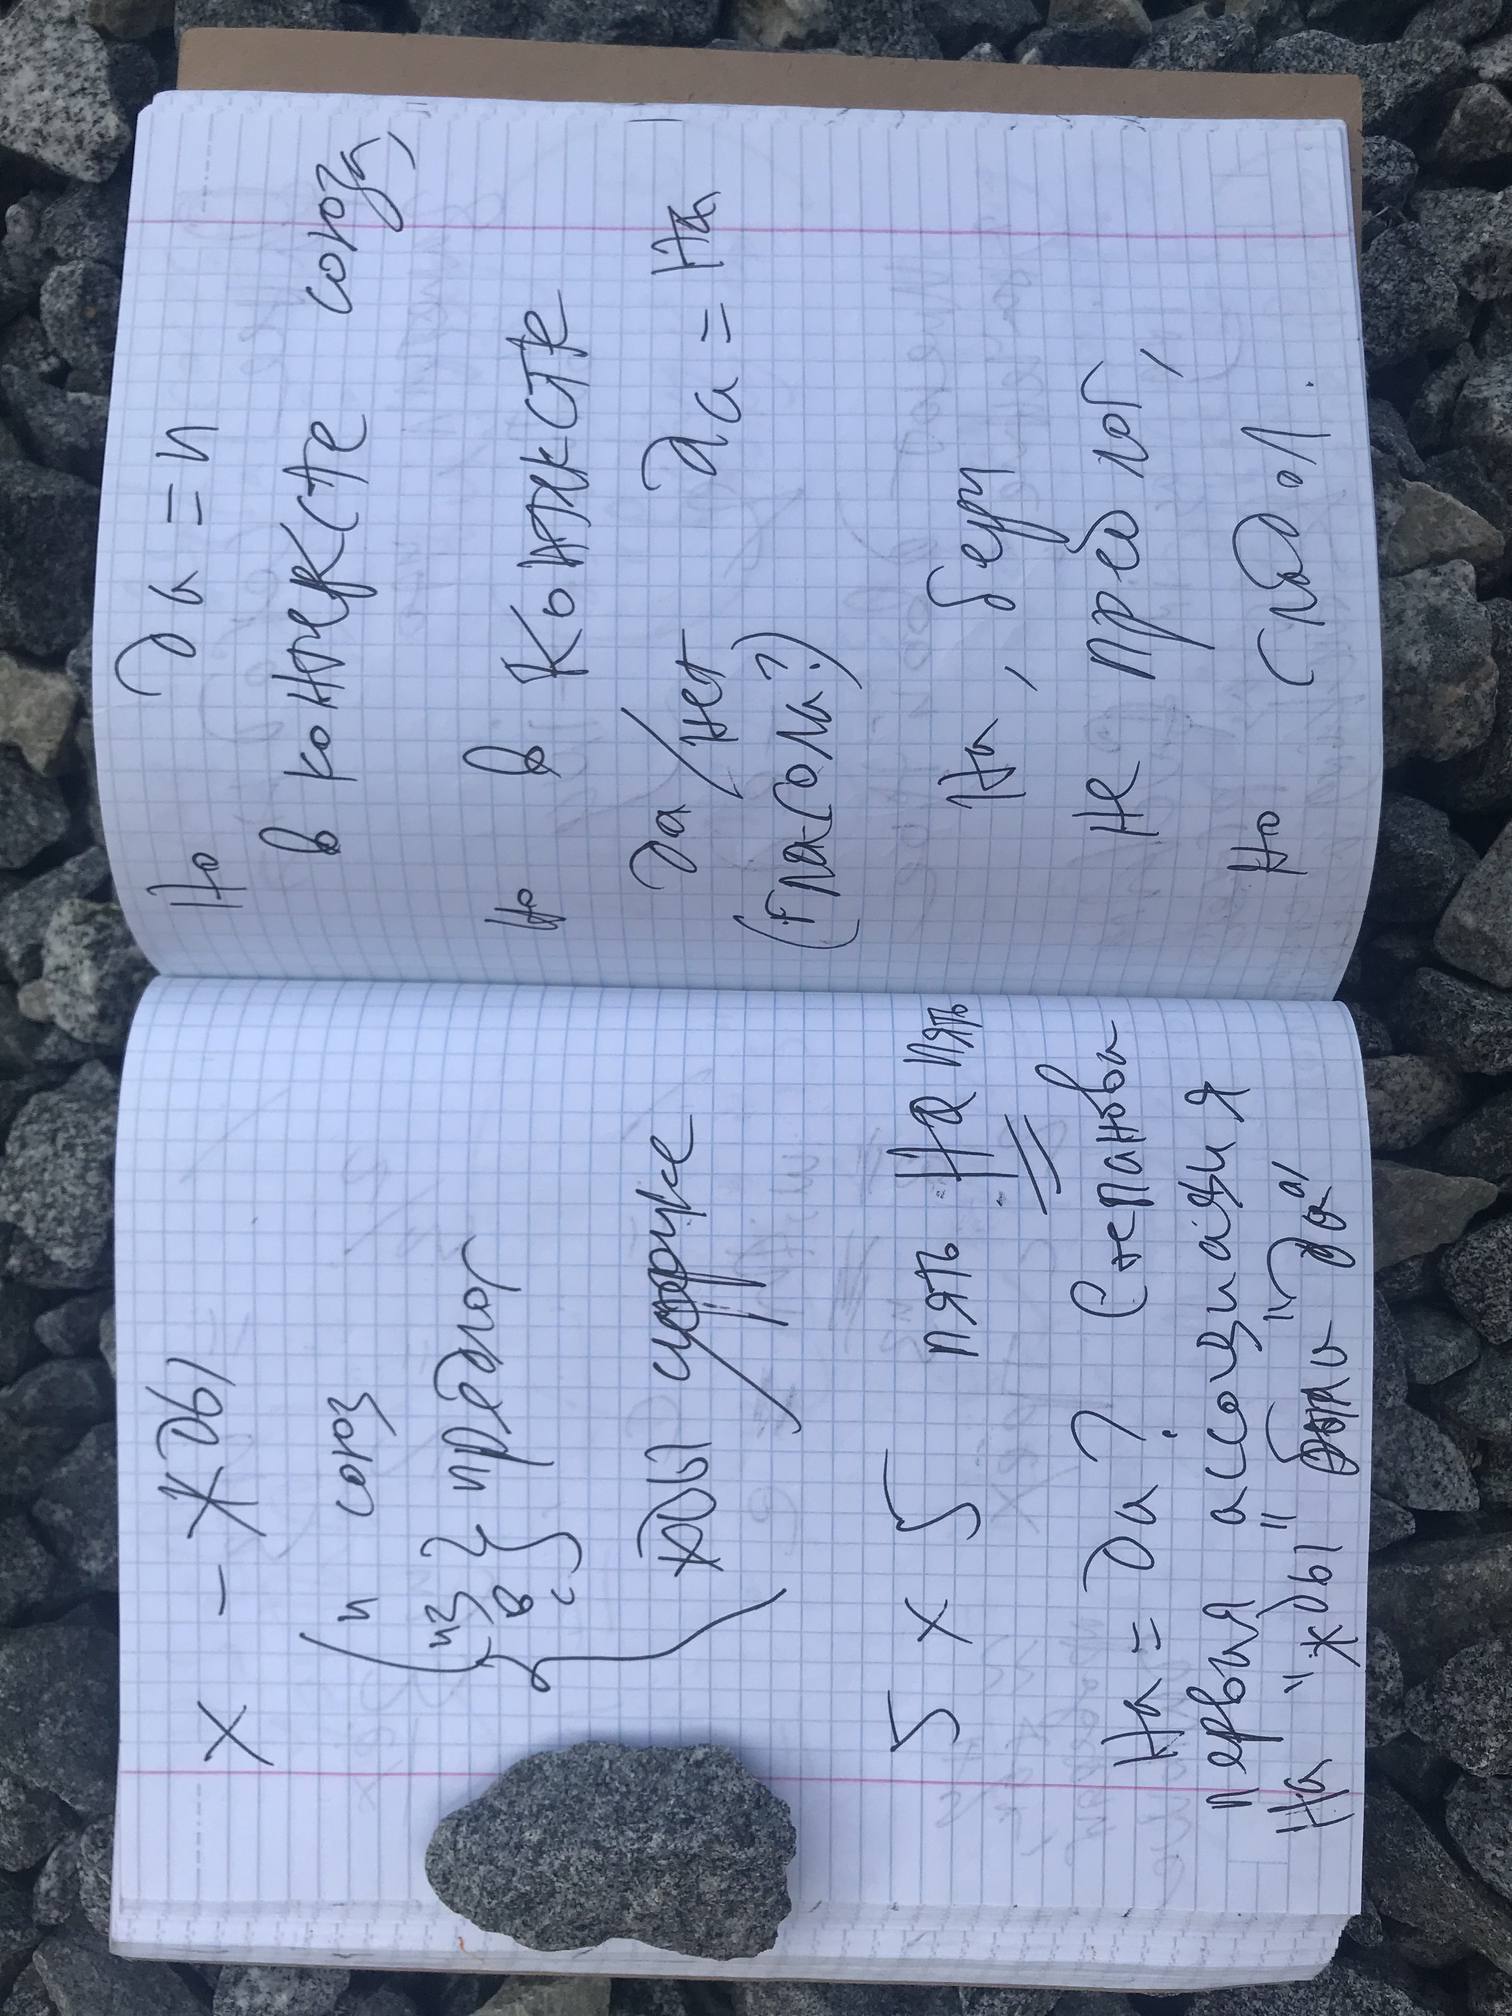 х - жды
и союз
из
в } предлог
с
жды
5 х 5 пять на пять
На = да? Степанова
первая ассоциация
На "жды" была "да"
Но да = и
в контексте союза,
но в контексте
да/нет да = на
(глагола?)
На, бери
не предлог,
но глагол.